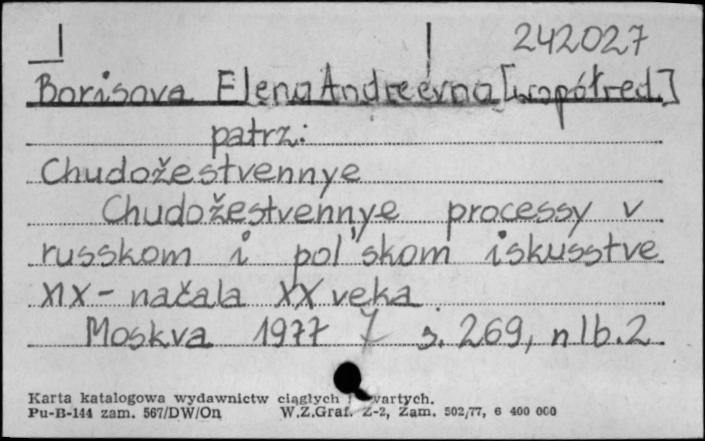 242027
Borisova Elena Andreevna [współred.]
patrz:
Chudožestvennye
Chudožestvennye processy v
russkom i pol'skom iskusstve
XIX - načala XX veka
Moskva 1977 s. 269, nlb. 2
Karta katalogowa wydawnictw ciągłych i zwartych.
Pu-B-144 zam. 567/DW/On W.Z.Graf. Z-2, Zam. 502/77, 6 400 000